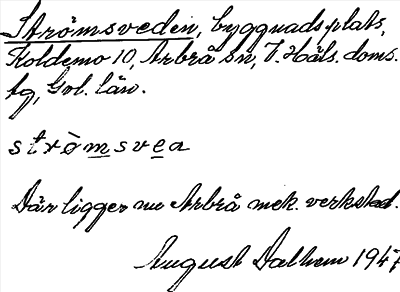 Strömsveden, byggnadsplats,
Koldemo 10, Arbrå sn, V. Häls. doms.
tg, Gvl. län.
strömsvea
Där ligger nu Arbrå mek. verkstad.
August Dalham 1947